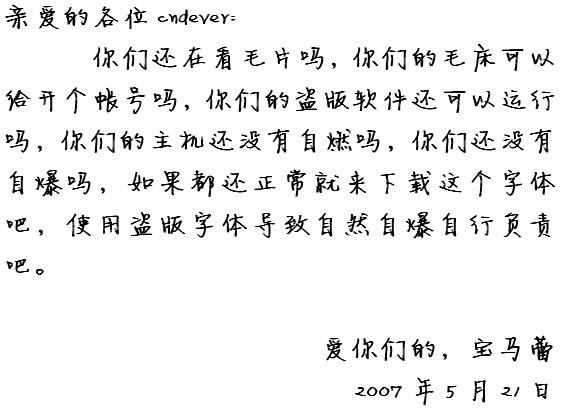 亲爱的各位cndever:
你们还在看毛片吗，你们的毛床可以
给开个帐号吗，你们的盗版软件还可以运行
吗，你们的主机还没有自燃吗，你们还没有
自爆吗，如果都还正常就来下载这个字体
吧，使用盗版字体导致自然自爆自行负责
吧。
爱你们的，宝马蕾
2007年5月21日